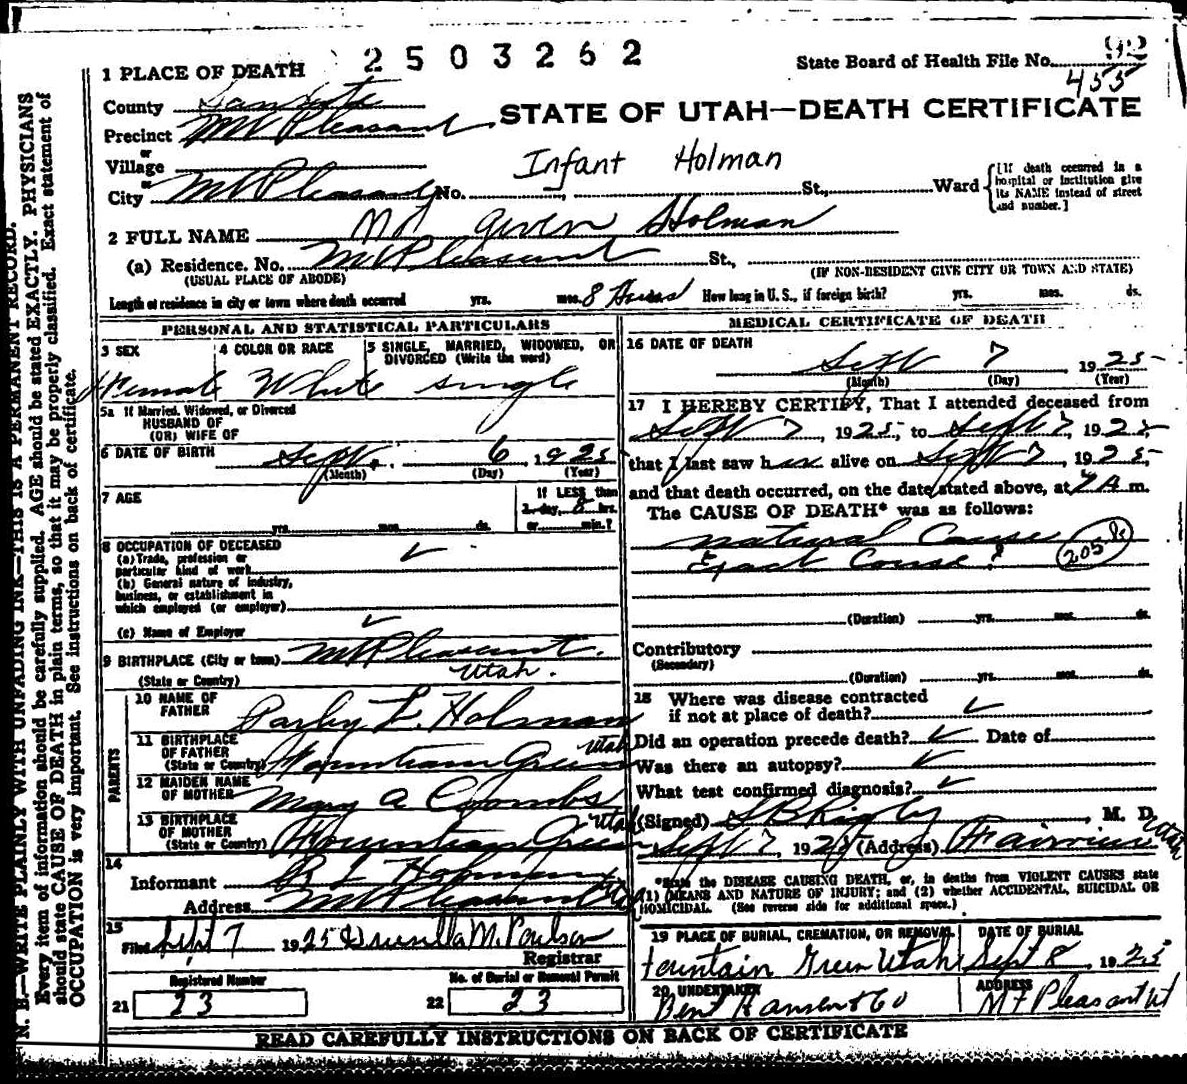 2503262
State Board of Health File No. 92
455
1 PLACE OF DEATH
County Sanpete
STATE OF UTAH—DEATH CERTIFICATE
Precinct Mt Pleasant
or
Village
Infant Holman
or
City Mt Pleasant No. St., Ward
[If death occurred in a hospital or institution give its NAME instead of street and number.]
2 FULL NAME No given Holman
(a) Residence. No. Mt Pleasant St.,
(USUAL PLACE OF ABODE)
(IF NON-RESIDENT GIVE CITY OR TOWN AND STATE)
Length of residence in city or town where death occurred yrs. mos. 8 hours How long in U. S., if foreign birth? yrs. mos. ds.
PERSONAL AND STATISTICAL PARTICULARS
3 SEX
Female
4 COLOR OR RACE
White
5 SINGLE, MARRIED, WIDOWED, OR DIVORCED (Write the word)
single
5a If Married, Widowed, or Divorced
HUSBAND OF
(OR) WIFE OF
6 DATE OF BIRTH Sept. 6 1925
(Month) (Day) (Year)
7 AGE
yrs. mos. ds.
If LESS than
1 day, 8 hrs.
or min.?
8 OCCUPATION OF DECEASED
(a) Trade, profession or
particular kind of work
(b) General nature of industry,
business, or establishment in
which employed (or employer)
(c) Name of Employer
9 BIRTHPLACE (City or town) Mt Pleasant.
(State or Country) Utah.
PARENTS
10 NAME OF
FATHER Parley L. Holman
11 BIRTHPLACE
OF FATHER
(State or Country) Fountain Green Utah
12 MAIDEN NAME
OF MOTHER Mary A Coombs
13 BIRTHPLACE
OF MOTHER
(State or Country) Fountain Green Utah
14
Informant P L Holman
Address Mt Pleasant
15
Filed Sept 7 1925 Drusilla M. Poulson
Registrar
Registered Number
21 23
No. of Burial or Removal Permit
22 23
MEDICAL CERTIFICATE OF DEATH
16 DATE OF DEATH
Sept 7 1925
(Month) (Day) (Year)
17 I HEREBY CERTIFY, That I attended deceased from
Sept 7, 1925, to Sept 7, 1925,
that I last saw h er alive on Sept 7, 1925,
and that death occurred, on the date stated above, at 7 A m.
The CAUSE OF DEATH* was as follows:
natural Cause
Exact Cause? 205
(Duration) yrs. mos. ds.
Contributory
(Secondary)
(Duration) yrs. mos. ds.
18 Where was disease contracted
if not at place of death?
Did an operation precede death? Date of
Was there an autopsy?
What test confirmed diagnosis?
(Signed) S B Rigby, M. D.
Sept 7, 1925 (Address) Fairview Utah
*State the DISEASE CAUSING DEATH, or, in deaths from VIOLENT CAUSES state
(1) MEANS AND NATURE OF INJURY; and (2) whether ACCIDENTAL, SUICIDAL OR
HOMICIDAL. (See reverse side for additional space.)
19 PLACE OF BURIAL, CREMATION, OR REMOVAL
Fountain Green Utah
DATE OF BURIAL
Sept 8, 1925
20 UNDERTAKER
Bent Hansen & Co
ADDRESS
Mt Pleasant Ut
READ CAREFULLY INSTRUCTIONS ON BACK OF CERTIFICATE
N. B.—WRITE PLAINLY WITH UNFADING INK—THIS IS A PERMANENT RECORD.
Every item of information should be carefully supplied. AGE should be stated EXACTLY. PHYSICIANS
should state CAUSE OF DEATH in plain terms, so that it may be properly classified. Exact statement of
OCCUPATION is very important. See instructions on back of certificate.